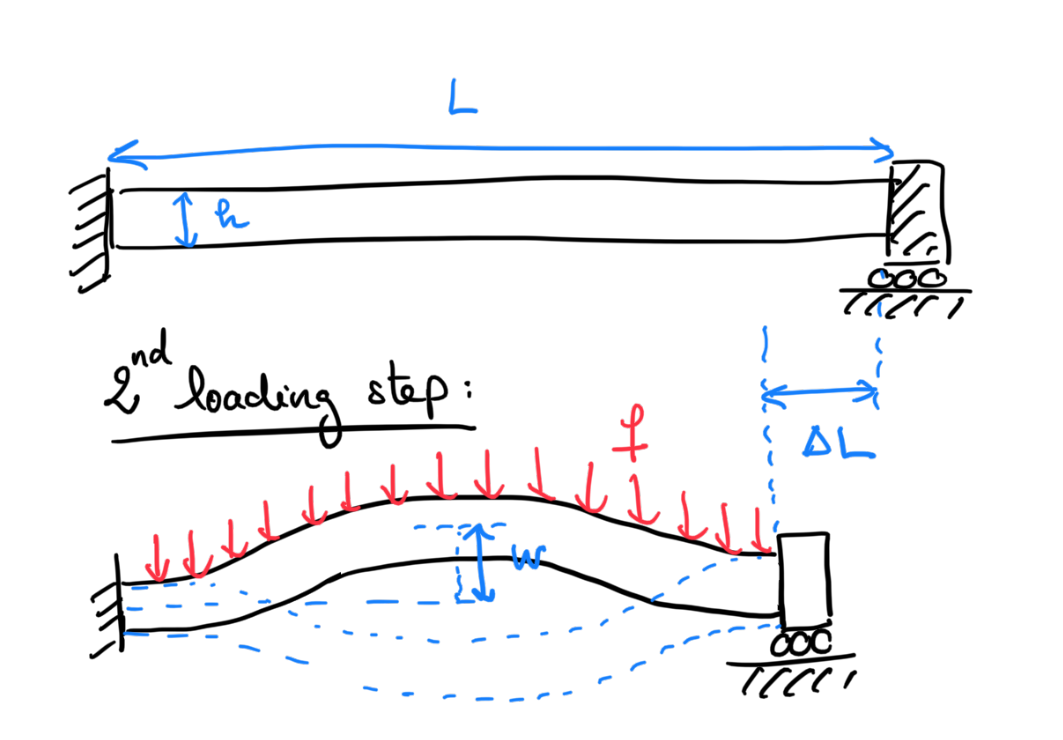 L
h
2nd loading step:
f
ΔL
w